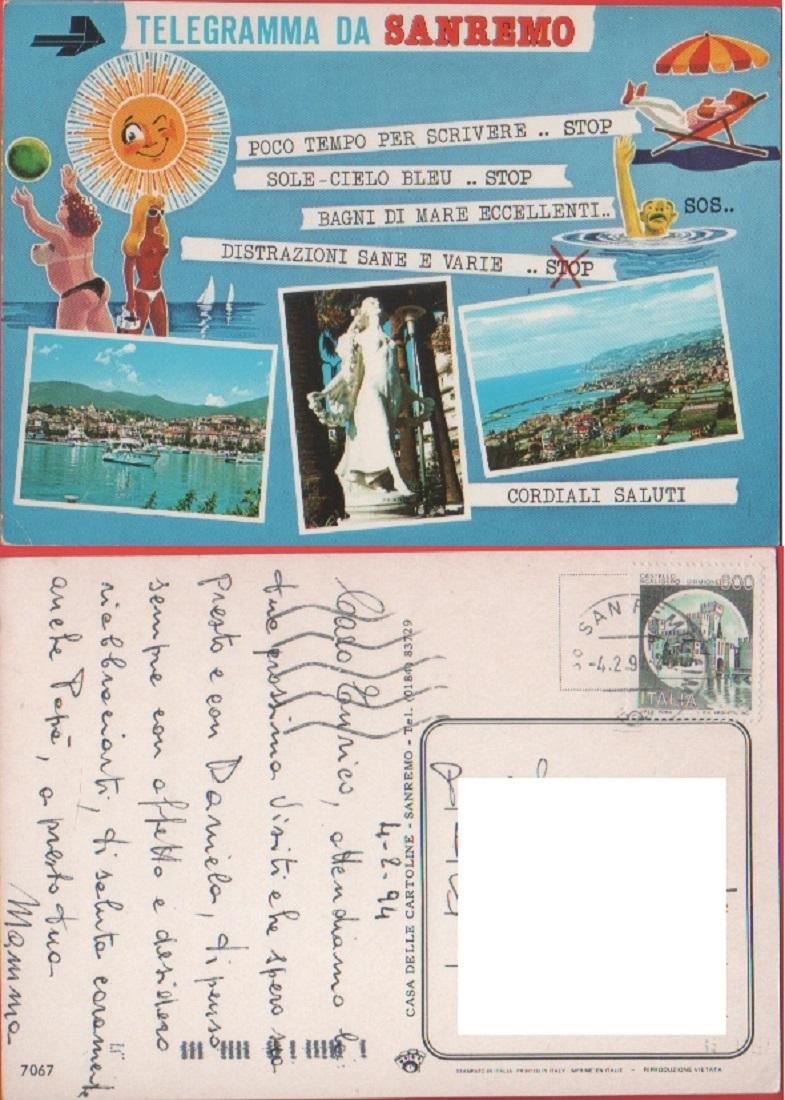 TELEGRAMMA DA SANREMO
POCO TEMPO PER SCRIVERE .. STOP
SOLE-CIELO BLEU .. STOP
BAGNI DI MARE ECCELLENTI.. SOS..
DISTRAZIONI SANE E VARIE .. STOP
CORDIALI SALUTI
4-2-94
Caro Enrico, attendiamo la
tua prossima visita che spero sia
presto e con Daniela, ti penso
sempre con affetto e desidero
riabbracciarti, ti saluta caramente
anche Papà, a presto tua
Mamma
CASA DELLE CARTOLINE - SANREMO - Tel. (0184) 83729
CASTELLO
SCALIGERO SIRMIONE 600
ITALIA
SAN REMO
-4.2.9
7067
STAMPATO IN ITALIA - PRINTED IN ITALY - IMPRIME EN ITALIE - RIPRODUZIONE VIETATA